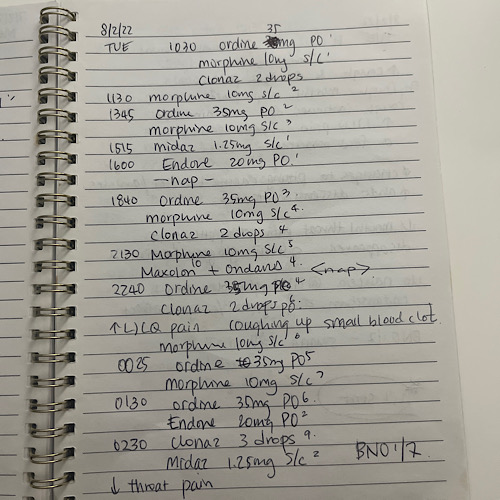 8/2/22 35
TUE 1030 ordine mg PO 1
morphine 10mg s/c 1
clonaz 2 drops
1130 morphine 10mg s/c 2
1345 ordine 35mg PO 2
morphine 10mg s/c 3
1515 midaz 1.25mg s/c 1
1600 Endone 20mg PO 1
- nap -
1840 ordine 35mg PO 3
morphine 10mg s/c 4.
clonaz 2 drops 4
2130 Morphine 10mg s/c 5
Maxolon 10 + ondans 4. <nap>
2240 ordine 35mg PO 4
clonaz 2 drops PO 6.
↑ L) LQ pain coughing up small blood clot.
morphine 10mg s/c 6
0025 ordine 35mg PO 5
Morphine 10mg s/c 7
0130 ordine 35mg PO 6.
Endone 20mg PO 2
0230 clonaz 3 drops 9.
Midaz 1.25mg s/c 2 BNO 1/7.
↓ throat pain